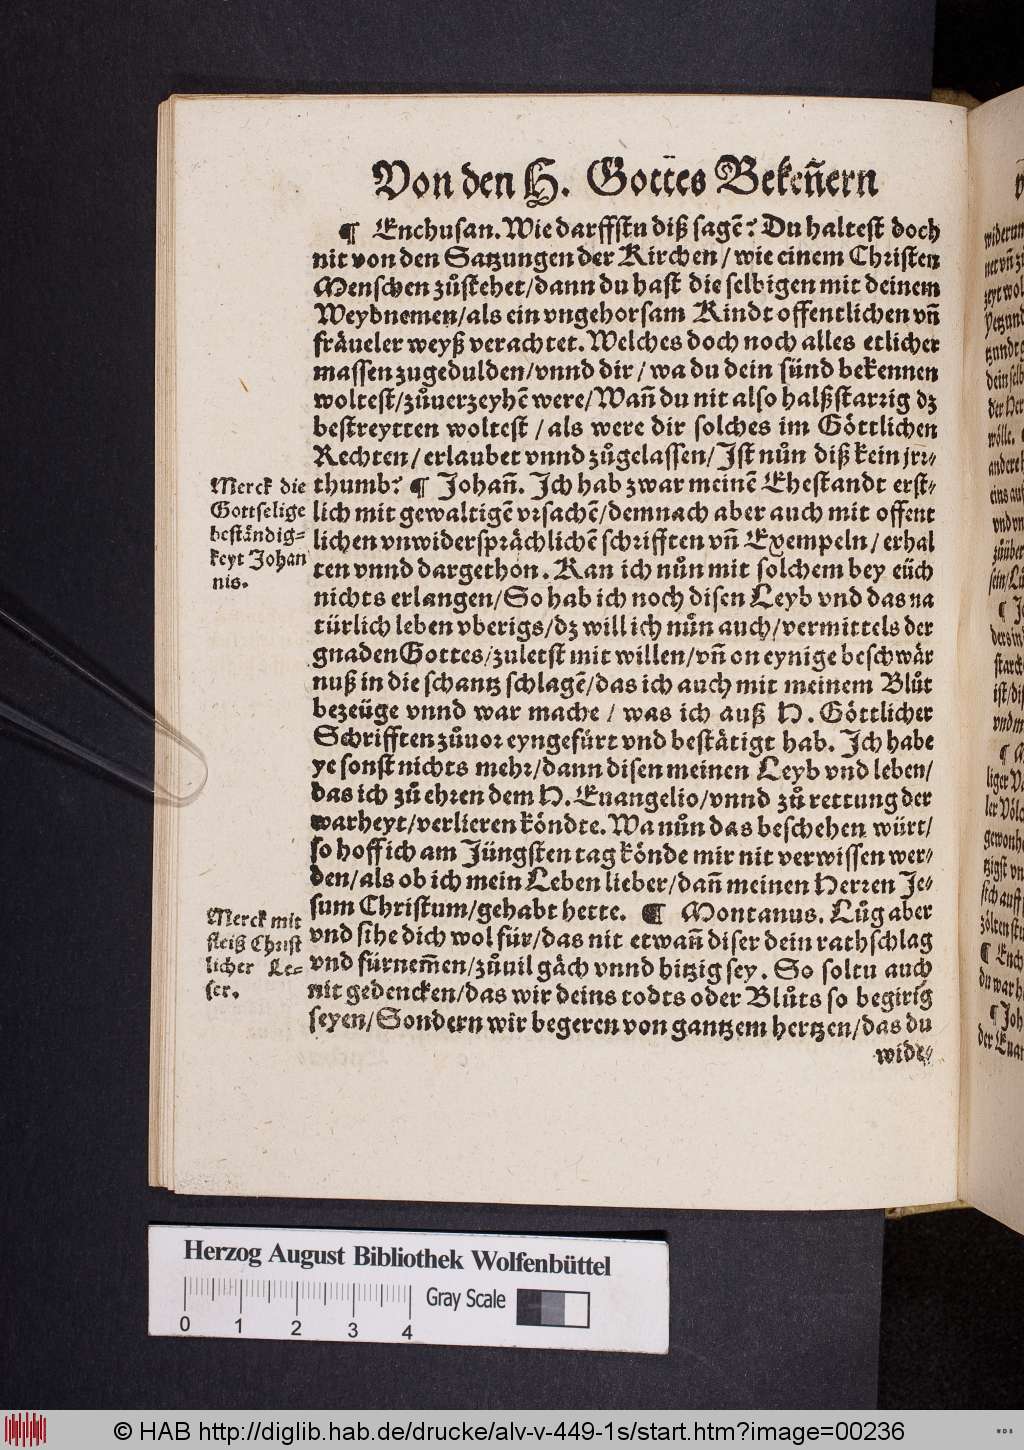 Von den H. Gottes Bekeñern
¶ Enchusan. Wie darffstu diß sagē? Du haltest doch
nit von den Satzungen der Kirchen / wie einem Christen
Menschen zůstehet/dann du hast die selbigen mit deinem
Weybnemen/als ein vngehorsam Kindt offentlichen vñ
fräueler weyß verachtet. Welches doch noch alles etlicher
massen zugedulden/vnnd dir / wa du dein sünd bekennen
woltest/zůuerzeyhē were/Wañ du nit also halßstarrig dz
bestreytten woltest / als were dir solches im Göttlichen
Rechten / erlaubet vnnd zůgelassen/ Ist nůn diß kein jrr⸗
thumb? ¶ Johañ. Ich hab zwar meinē Ehestandt erst⸗
lich mit gewaltigē vrsachē/demnach aber auch mit offent
lichen vnwidersprächlichē schrifften vñ Exempeln / erhal
ten vnnd dargethon. Kan ich nůn mit solchem bey eüch
nichts erlangen/So hab ich noch disen Leyb vnd das na
türlich leben vberigs/dz will ich nůn auch/vermittels der
gnaden Gottes/zuletst mit willen/vñ on eynige beschwär
nuß in die schantz schlagē/das ich auch mit meinem Blůt
bezeüge vnnd war mache / was ich auß H. Göttlicher
Schrifften zůuor eyngefürt vnd bestätigt hab. Ich habe
ye sonst nichts mehr/dann disen meinen Leyb vnd leben/
das ich zů ehren dem H. Euangelio/vnnd zů rettung der
warheyt/verlieren köndte. Wa nůn das beschehen würt/
so hoff ich am Jüngsten tag könde mir nit verwissen wer⸗
den/als ob ich mein Leben lieber/dañ meinen Herren Je⸗
sum Christum/gehabt hette. ¶ Montanus. Lůg aber
vnd sihe dich wol für/das nit etwañ diser dein rathschlag
vnd fürnem̃en/zůuil gäch vnnd hitzig sey. So soltu auch
nit gedencken/das wir deins todts oder Blůts so begirig
seyen/Sondern wir begeren von gantzem hertzen/das du
wide⸗
Merck die
Gottselige
beständig⸗
keyt Johan
nis.
Merck mit
fleiß Christ
licher Le⸗
ser.
Herzog August Bibliothek Wolfenbüttel
Gray Scale
0 1 2 3 4
© HAB http://diglib.hab.de/drucke/alv-v-449-1s/start.htm?image=00236